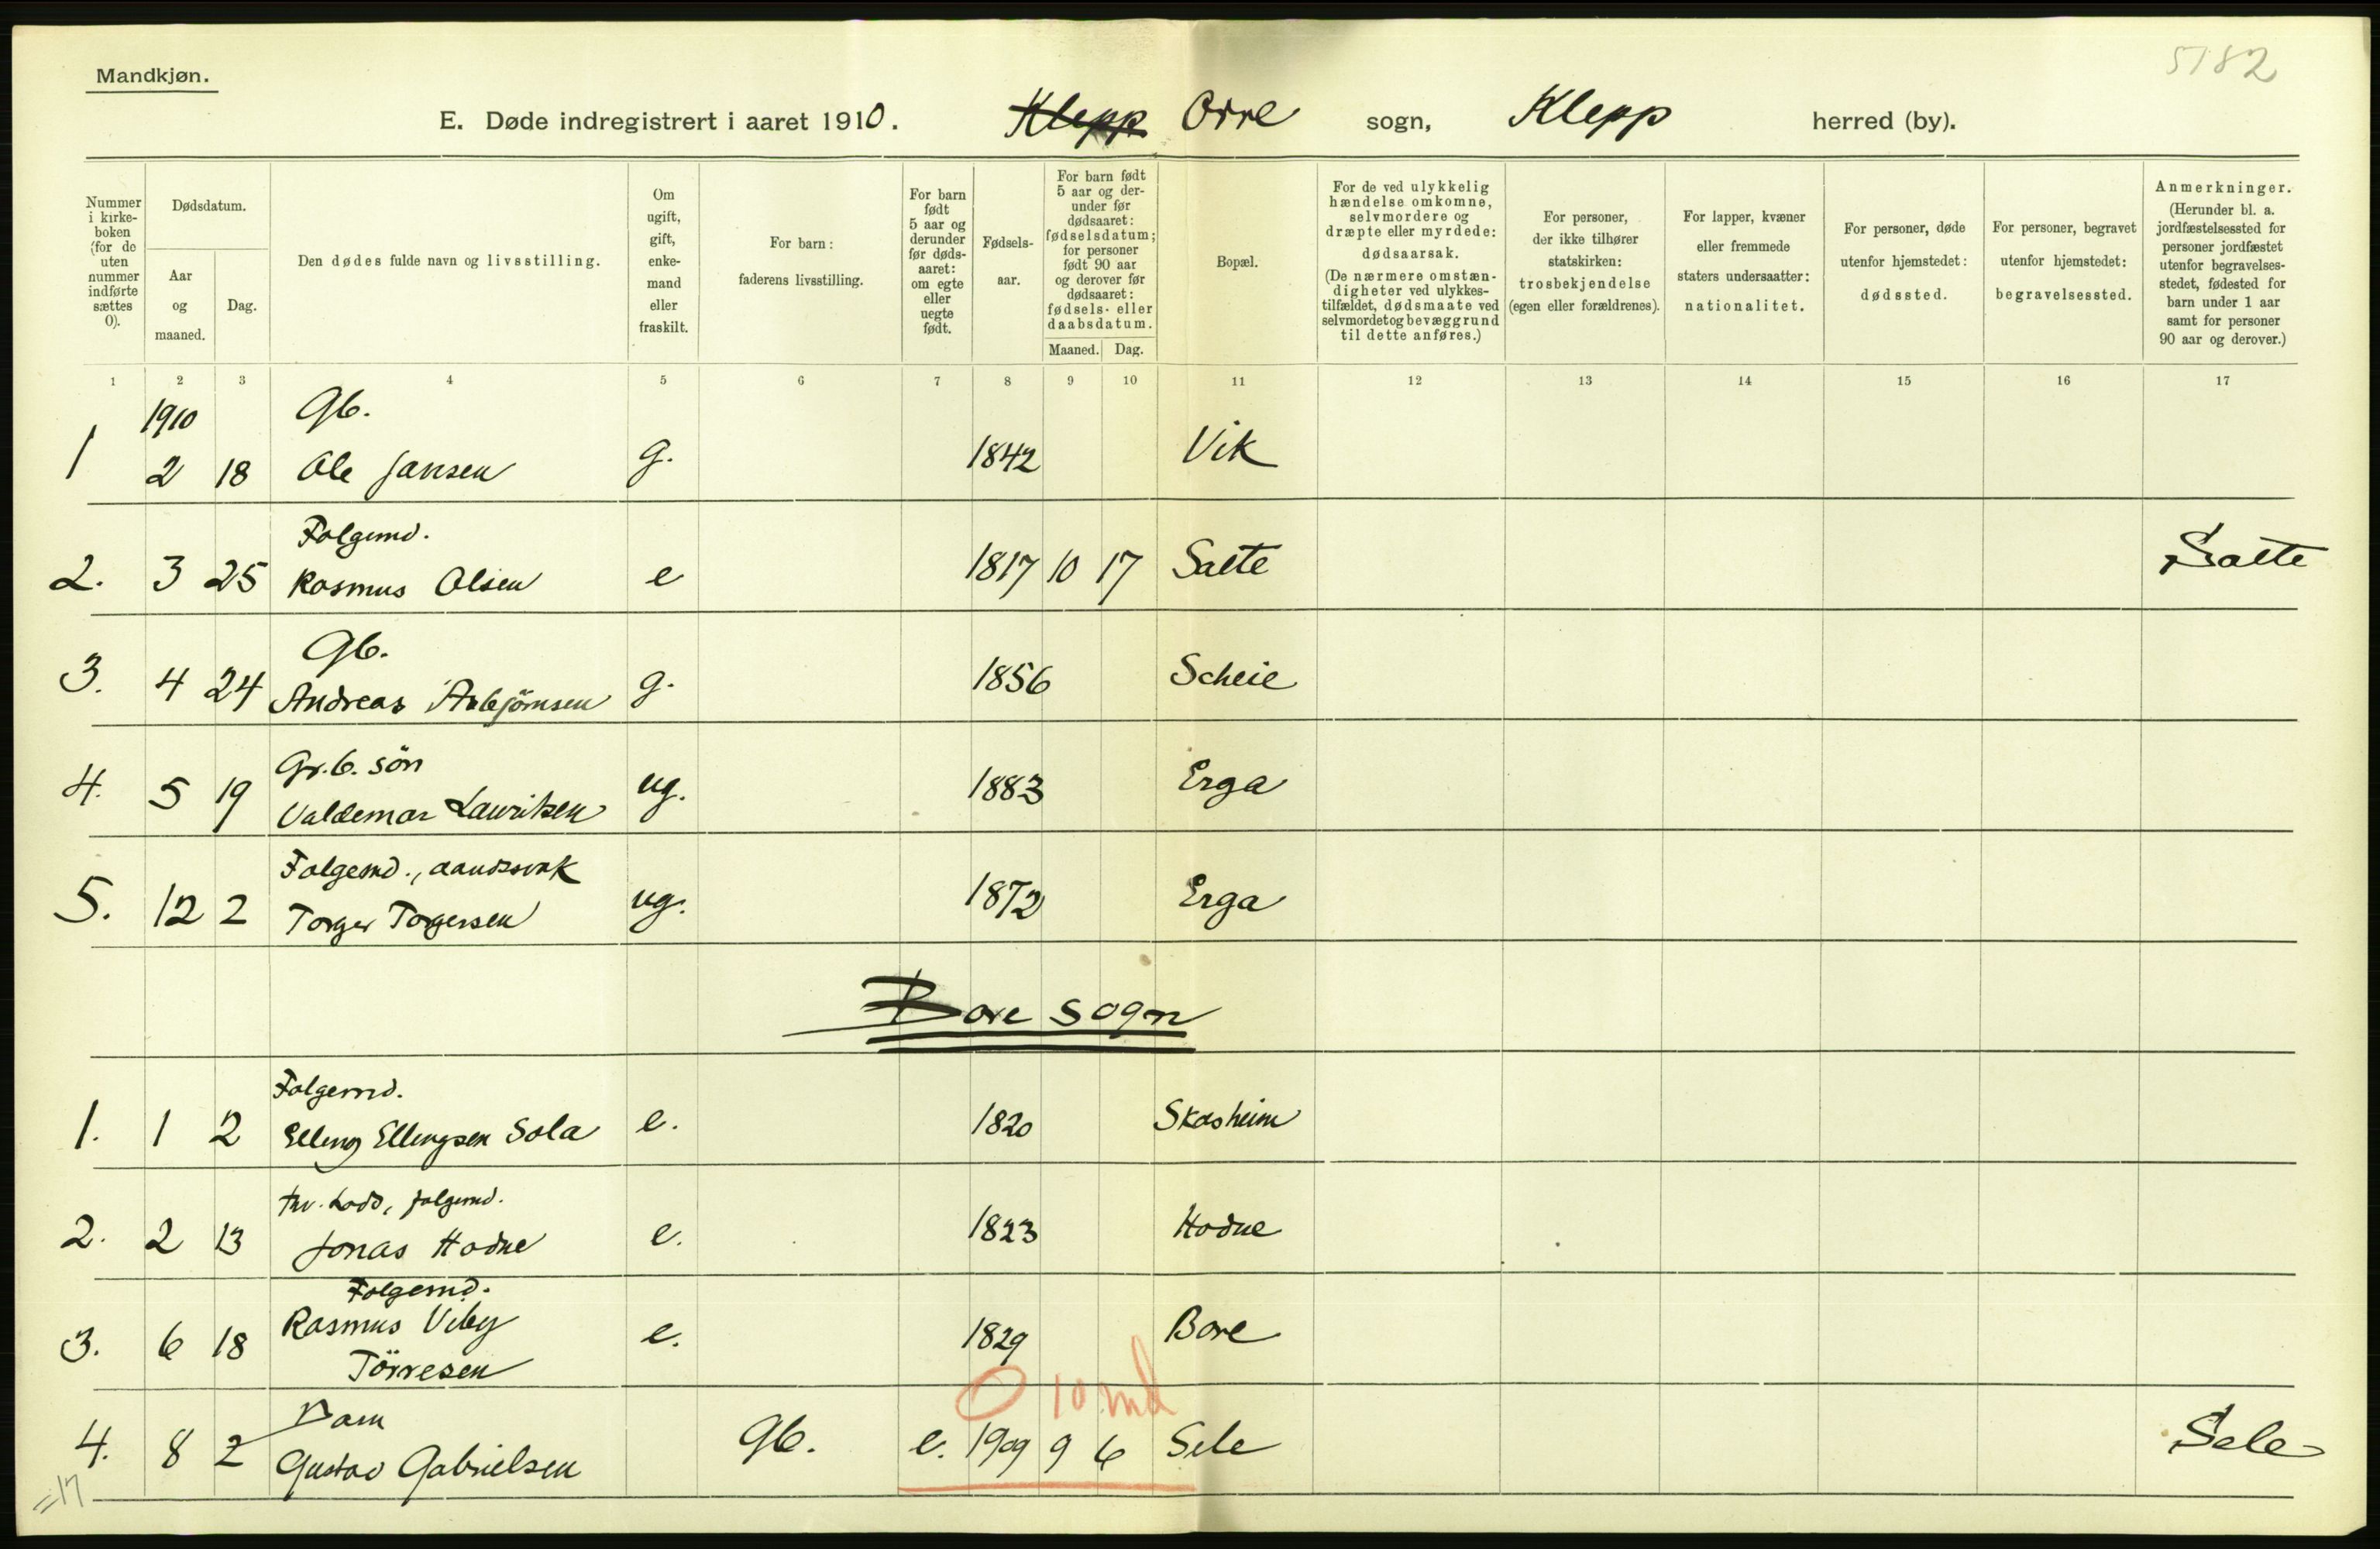 5182
Mandkjøn.
E. Døde indregistrert i aaret 1910. Klepp Orre sogn, Klepp herred (by).
Nummer i kirke-boken (for de uten nummer indførte sættes 0).
Dødsdatum.
Aar og maaned.
Dag.
Den dødes fulde navn og livsstilling.
Om ugift, gift, enke-mand eller fraskilt.
For barn: faderens livsstilling.
For barn født 5 aar og derunder før døds-aaret: om egte eller uegte født.
Fødsels-aar.
For barn født 5 aar og der-under før dødsaaret: fødselsdatum; for personer født 90 aar og derover før dødsaaret: fødsels- eller daabsdatum.
Maaned. Dag.
Bopæl.
For de ved ulykkelig hændelse omkomne, selvmordere og dræpte eller myrdede: dødsaarsak. (De nærmere omstæn-digheter ved ulykkes-tilfældet, dødsmaate ved selvmordet og bevæggrund til dette anføres.)
For personer, der ikke tilhører statskirken: trosbekjendelse (egen eller forældrenes).
For lapper, kvæner eller fremmede staters undersaatter: nationalitet.
For personer, døde utenfor hjemstedet: dødssted.
For personer, begravet utenfor hjemstedet: begravelsessted.
Anmerkninger. (Herunder bl. a. jordfæstelsessted for personer jordfæstet utenfor begravelses-stedet, fødested for barn under 1 aar samt for personer 90 aar og derover.)
1 2 3 4 5 6 7 8 9 10 11 12 13 14 15 16 17
1910 Gb.
1 2 18 Ole Jansen g. 1842 Vik
Folgemd.
2. 3 25 Rasmus Olsen e 1817 10 17 Salte Salte
Gb.
3. 4 24 Andreas Asbjörnsen g. 1856 Scheie
Gr.b. sön
4. 5 19 Valdemar Lauritsen ug. 1883 Erga
Folgemd., aandssvak
5. 12 2 Torger Torgersen ug. 1872 Erga
Bore sogn
Folgemd.
1. 1 2 Elling Ellingsen Sola e. 1820 Skasheim
fhv. Lods, folgemd.
2. 2 13 Jonas Hodne e. 1823 Hodne
Folgemd.
3. 6 18 Rasmus Viby e. 1829 Bore
Törresen
0 10 md
Barn
4. 8 2 Gustav Gabrielsen Gb. e. 1909 9 6 Sele Sele
=17